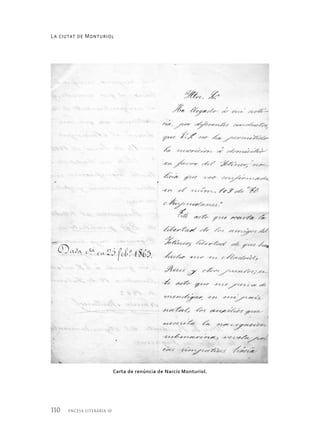 La ciutat de Monturiol
Iltre. Sr.
Ha llegado á mi noti-
cia, por diferentes conductos,
que V.S. no ha permitido
la suscricion á domicilio
en favor del Ictíneo, no-
ticia que veo confirmada
en el núm. 103 de "El
Ampurdanes".
Este acto que coarta la
libertad de los amigos del
Ictíneo, libertad de que han
hecho uso en Madrid,
y otros puntos; es-
te acto que me priva de
mendigar, en mi país
natal, los auxilios que
necesita la navegacion
submarina, revela po-
cas simpatías hacia
Dada cta. en 25 feb.º 1863.
Carta de renúncia de Narcís Monturiol.
110 ENCESA LITERÀRIA 10